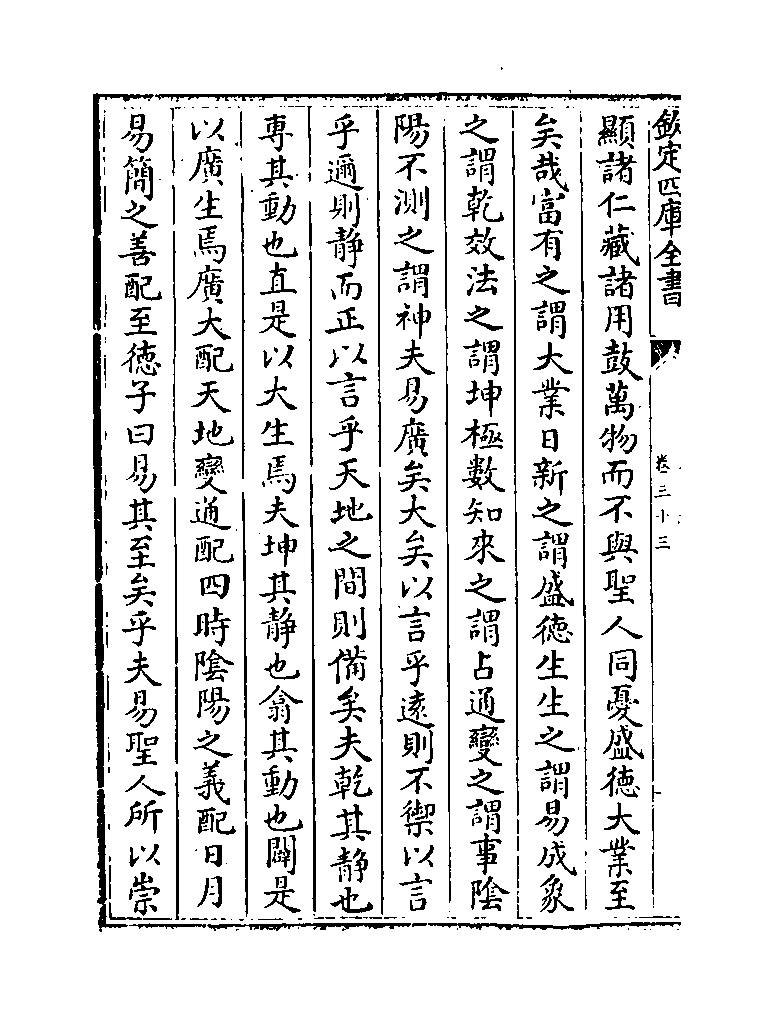 欽定四庫全書
卷三十三
顯諸仁藏諸用鼓萬物而不與聖人同憂盛德大業至
矣哉富有之謂大業日新之謂盛德生生之謂易成象
之謂乾效法之謂坤極數知來之謂占通變之謂事陰
陽不測之謂神夫易廣矣大矣以言乎遠則不禦以言
乎邇則静而正以言乎天地之間則備矣夫乾其静也
専其動也直是以大生焉夫坤其静也翕其動也闢是
以廣生焉廣大配天地變通配四時陰陽之義配日月
易簡之善配至德子曰易其至矣乎夫易聖人所以崇